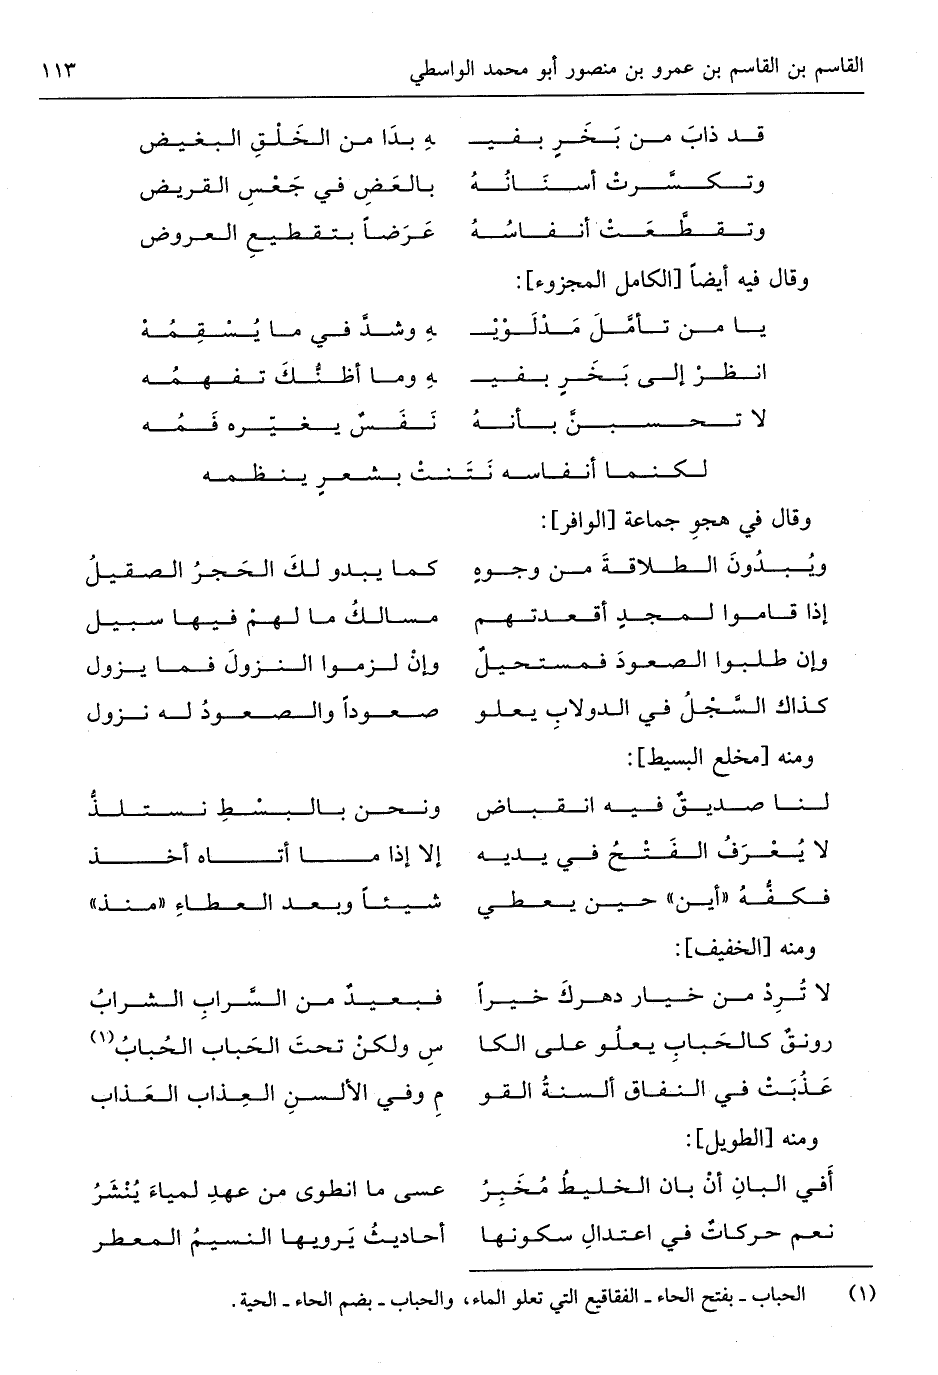 القاسم بن القاسم بن عمرو بن منصور أبو محمد الواسطي ١١٣
قد ذابَ من بَخَرٍ بفيـ ـهِ بدَا من الخَلْقِ البغيض
وتكسَّرتْ أسنانُهُ بالعَضِ في جَعْسِ القريض
وتقطَّعَتْ أنفاسُهُ عَرَضاً بتقطيع العروض
وقال فيه أيضاً [الكامل المجزوء]:
يا من تأمَّلَ مَدْلَوَيْـ ـهِ وشدَّ في ما يُسْقِمُهْ
انظرْ إلى بَخَرٍ بفيـ ـهِ وما أظنُّكَ تفهمُه
لا تحسبنَّ بأنهُ نَفَسٌ يغيّره فَمُه
لكنما أنفاسه نَتَنتْ بشعرٍ ينظمه
وقال في هجوِ جماعة [الوافر]:
ويُبدُونَ الطلاقةَ من وجوهٍ كما يبدو لكَ الحَجرُ الصقيلُ
إذا قاموا لمجدٍ أقعدتهم مسالكُ ما لهمْ فيها سبيل
وإن طلبوا الصعودَ فمستحيلٌ وإنْ لزموا النزولَ فما يزول
كذاك السَّجْلُ في الدولابِ يعلو صعوداً والصعودُ له نزول
ومنه [مخلع البسيط]:
لنا صديقٌ فيه انقباض ونحن بالبسْطِ نستلذُّ
لا يُعْرَفُ الفَتْحُ في يديه إلا إذا ما أتاه أخذ
فكفُّهُ «أين» حين يعطي شيئاً وبعد العطاءِ «منذ»
ومنه [الخفيف]:
لا تُرِدْ من خيار دهركَ خيراً فبعيدٌ من السَّرابِ الشرابُ
رونقٌ كالحَبابِ يعلُو على الكا سِ ولكنْ تحتَ الحَباب الحُبابُ(١)
عَذُبَتْ في النفاق ألسنةُ القو مِ وفي الألسنِ العِذاب العَذاب
ومنه [الطويل]:
أَفي البانِ أنْ بان الخليطُ مُخَبِرُ عسى ما انطوى من عهدِ لمياءَ يُنْشَرُ
نعم حركاتٌ في اعتدالِ سكونها أحاديثُ يَرويها النسيمُ المعطر
(١) الحباب ـ بفتح الحاء ـ الفقاقيع التي تعلو الماء، والحباب ـ بضم الحاء ـ الحية.